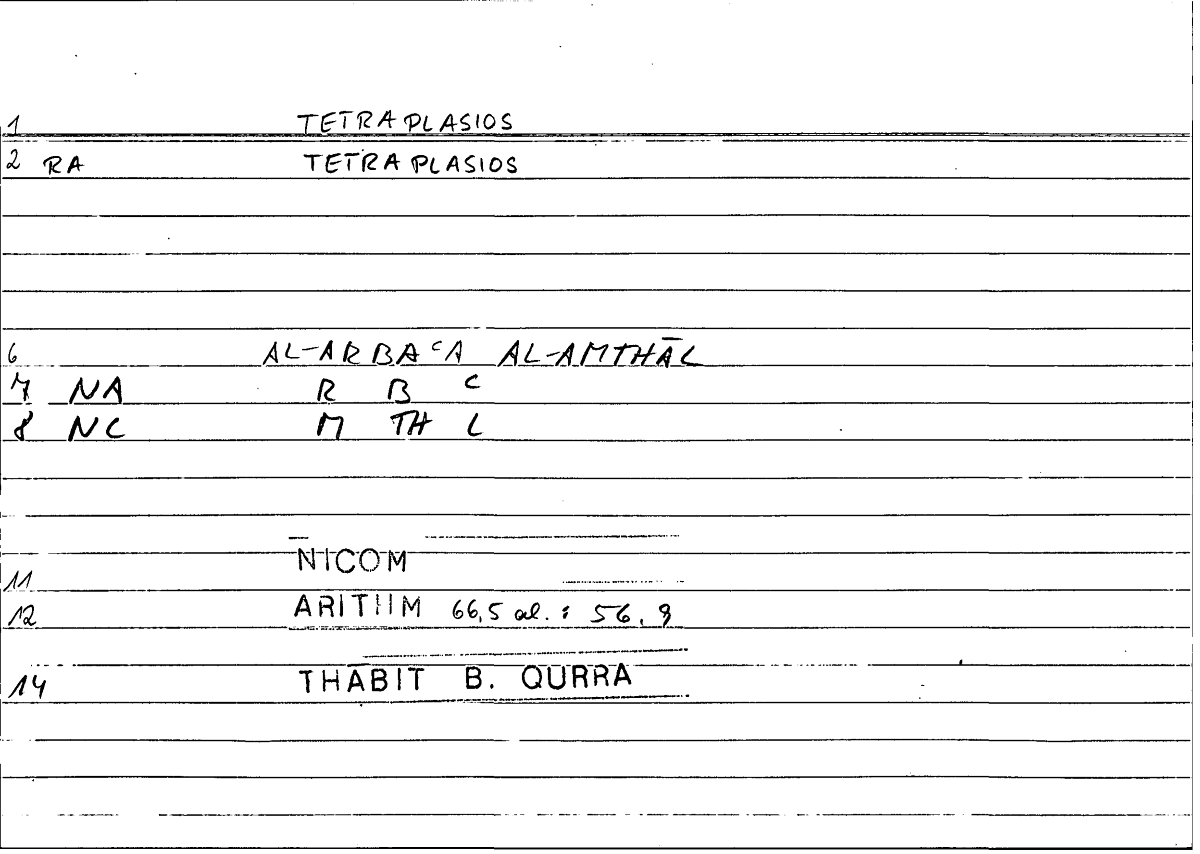 1 TETRAPLASIOS
2 RA TETRAPLASIOS
6 AL-ARBAᶜA AL-AMTHĀL
7 NA R B ᶜ
8 NC M TH L
11 NICOM
12 ARITHM 66,5 al. : 56, 9
14 THĀBIT B. QURRA